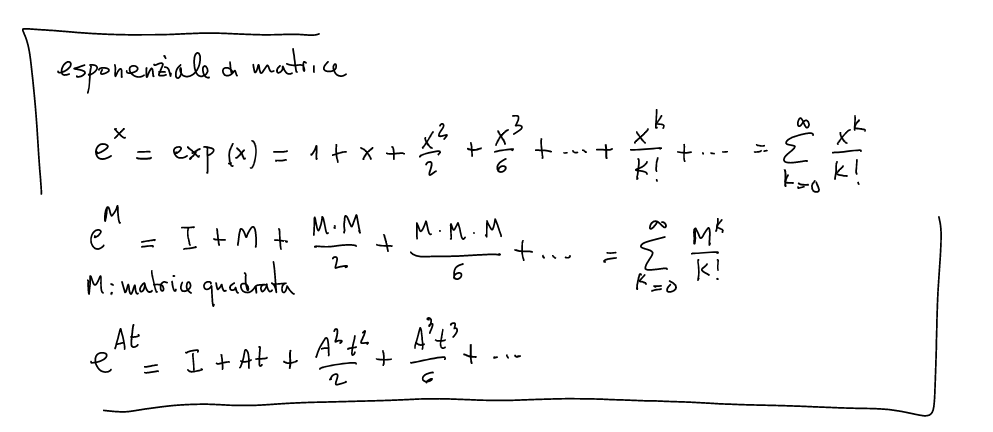 esponenziale di matrice
e^x = exp (x) = 1 + x + x^2/2 + x^3/6 + ... + x^k/k! + ... = ∑_{k=0}^{∞} x^k/k!
e^M = I + M + M·M/2 + M·M·M/6 + ... = ∑_{k=0}^{∞} M^k/k!
M: matrice quadrata
e^{At} = I + At + A^2t^2/2 + A^3t^3/6 + ...